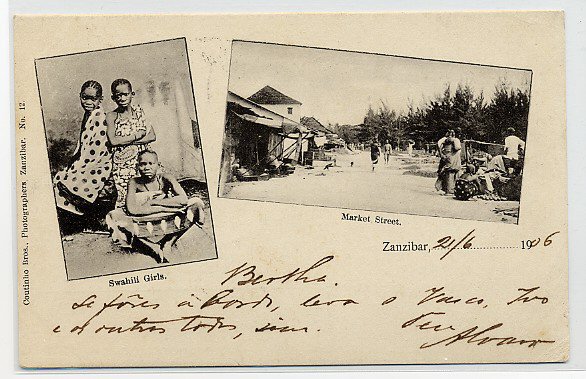 Coutinho Bros., Photographers Zanzibar. No. 12.
Swahili Girls.
Market Street.
Zanzibar, 21/6 1906
Bertha.
Se fôres á bordo, leva o Vasco, Ivo
e os outros todos, sim.
Teu
Alvaro